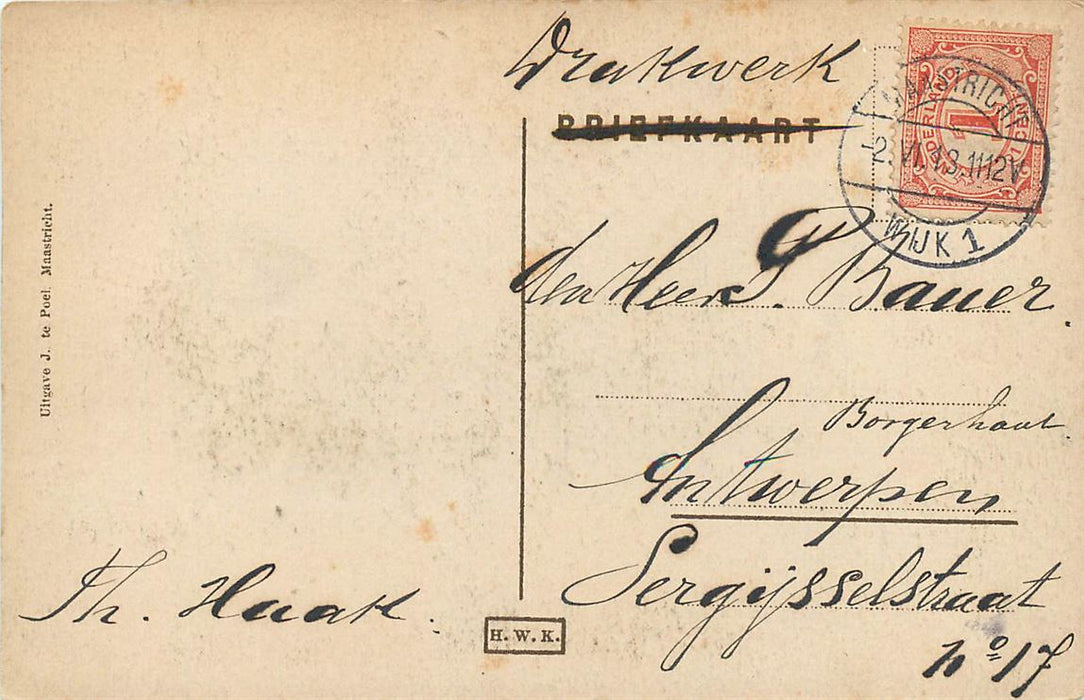 Drukwerk
BRIEFKAART
MAASTRICHT
2.VI.13.11-12V
WIJK 1
NEDERLAND
1
den Heer P. Bauer.
Borgerhout
Antwerpen
Sergijsselstraat
No 17
Uitgave J. te Poel. Maastricht.
Th. Haak.
H. W. K.